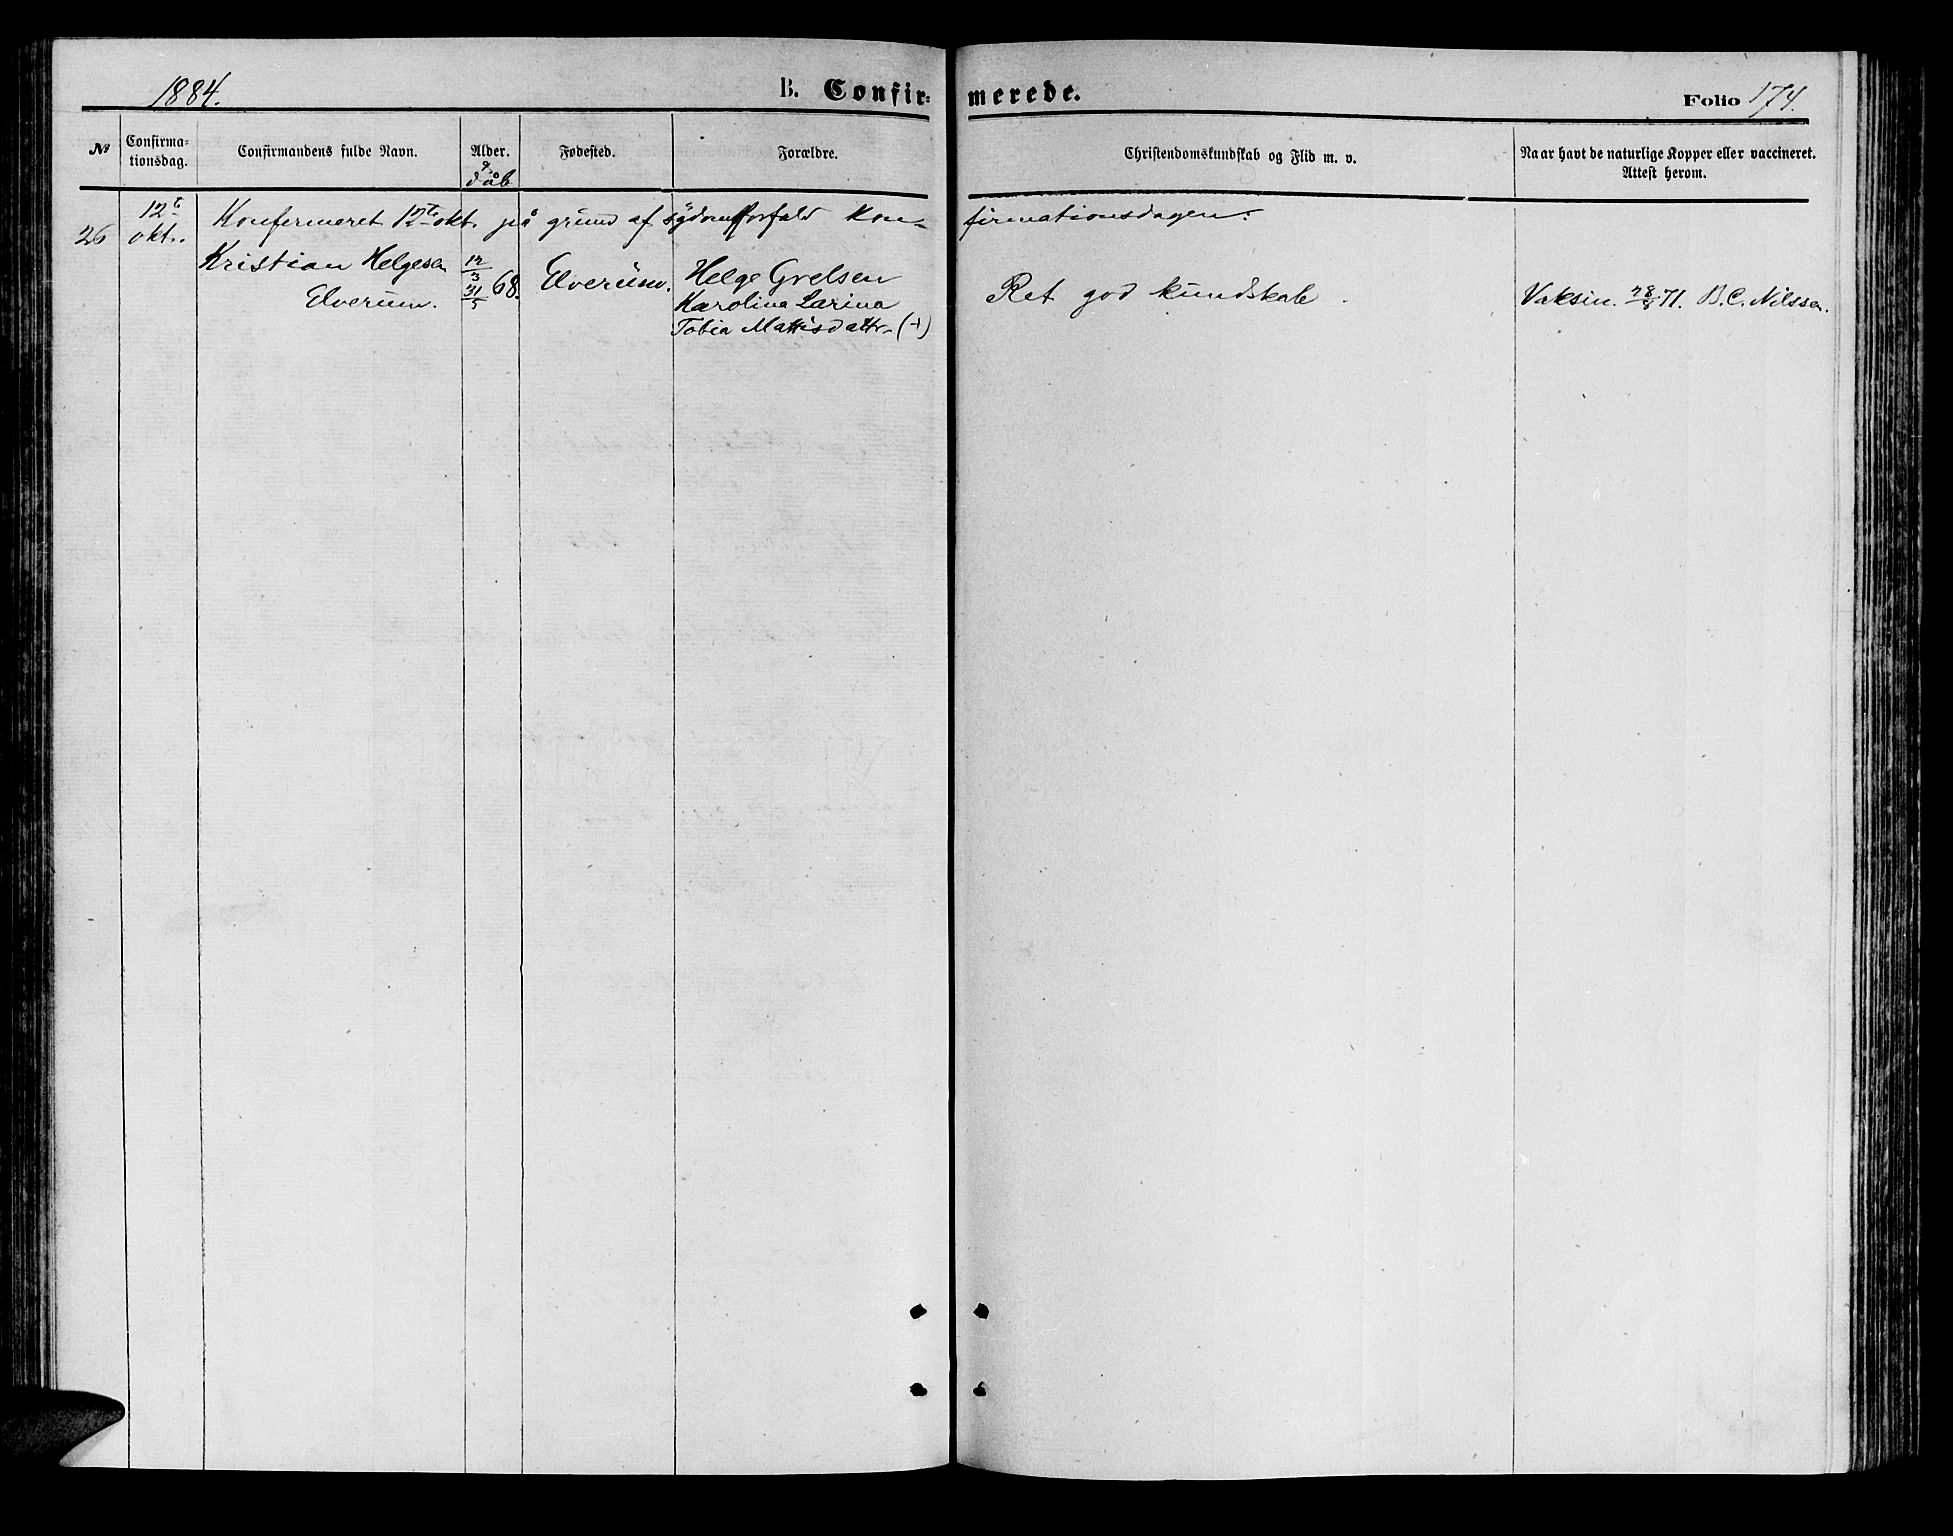 1884.
B. Confir-
merede.
Folio 174.
No
Confirma-
tionsdag.
Confirmandens fulde Navn.
Alder.
& dåb
Fødested.
Forældre.
Christendomskundskab og Flid m. v.
Naar havt de naturlige Kopper eller vaccineret.
Attest herom.
26
12te
okt.
Konfermeret 12te okt. på grund af sydomsforfald kon-
firmationsdagen.
Kristian Helgesen
Elverum.
12/3
31/5 68.
Elverum.
Helge Grelsen
Karolina Larina
Tobia Mattisdattr. (+)
Ret god kundskab.
Vaksin. 28/8 71. B. C. Nilssen.